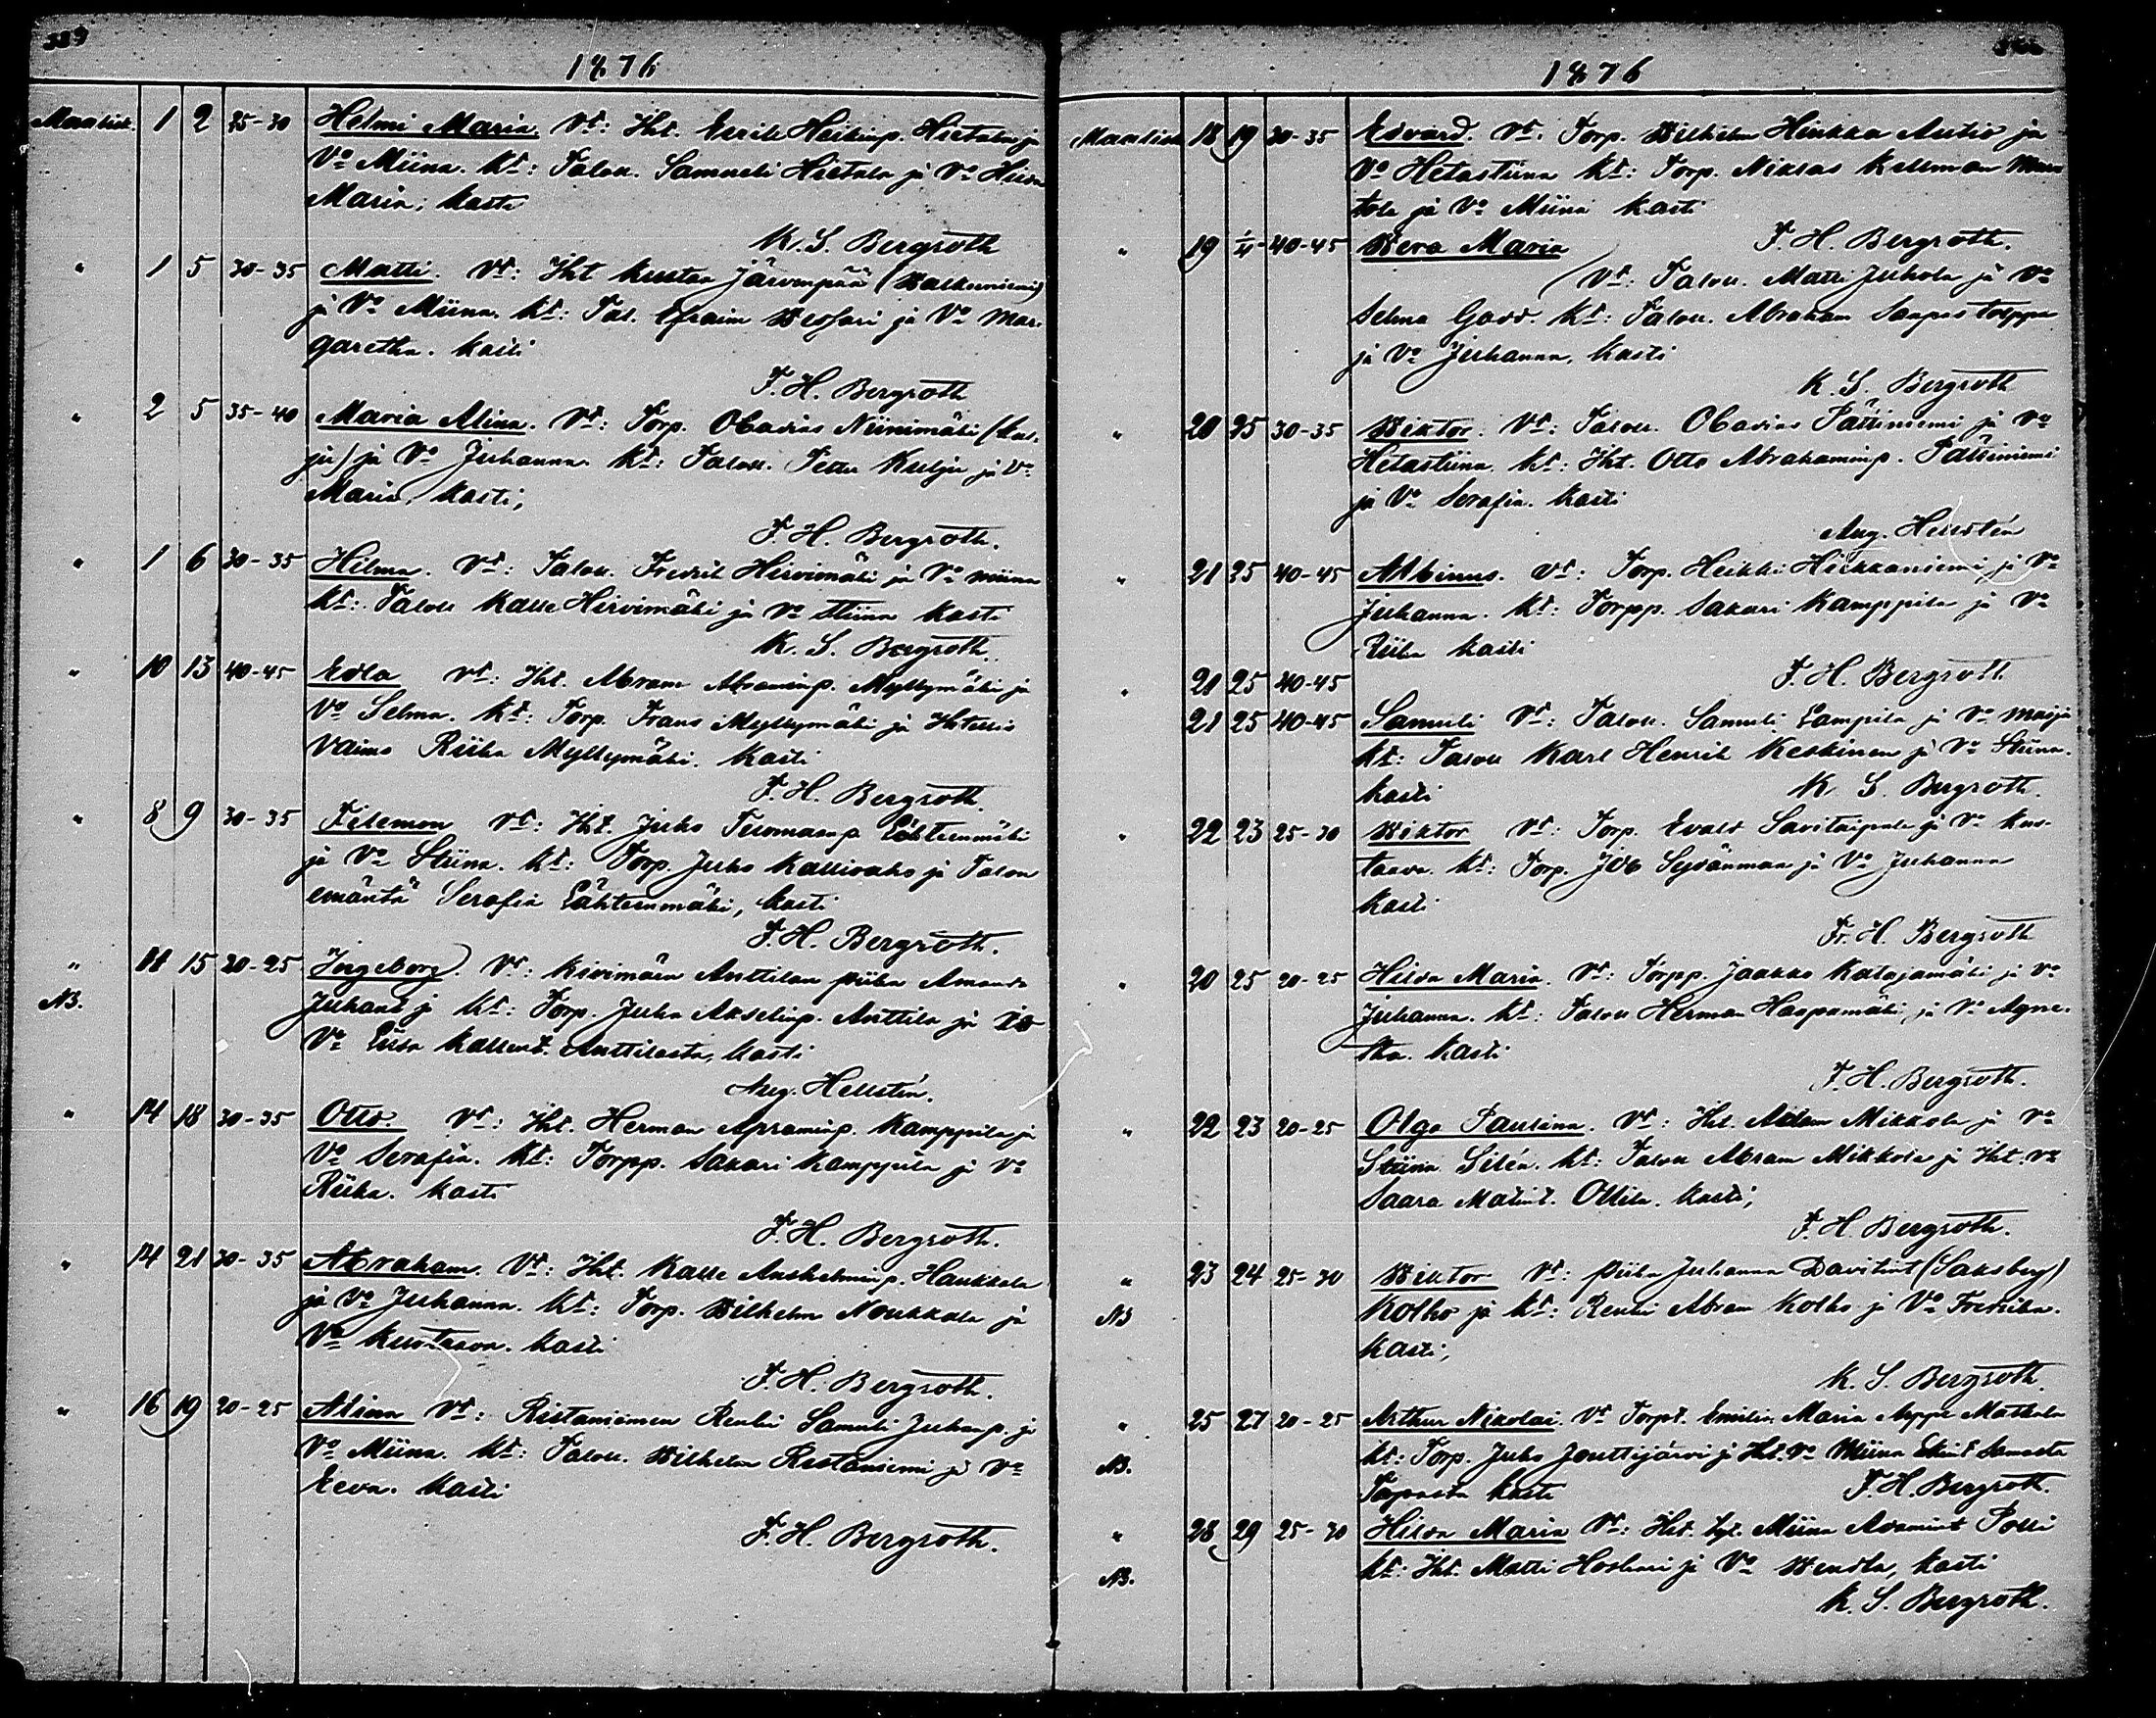 339
1876
Maalisk. 1 2 25-30 Helmi Maria. Vt: Iht. Eerik Heikinp. Hietala ja
Vo Miina. Kt: Talou. Samueli Hietala ja Vo Hilda
Maria; kasti
K. S. Bergroth
" 1 5 30-35 Matti. Vt: Iht Kustaa Järvenpää
ja Vo Miina. Kt: Tal. Efraim ja Vo Mar-
garetha. kasti
F. H. Bergroth
" 2 5 35-40 Maria Alina. Vt: Torp. Obadias Niinimäki (Kul-
ju) ja Vo Juhanna Kt: Talou. Petter Kulju ja Vo
Maria, kasti;
F. H. Bergroth.
" 1 6 30-35 Hilma. Vt: Talou. Fredrik Hirvimäki ja Vo Miina
Kt: Talou Kalle Hirvimäki ja Vo Stiina kasti
K. S. Bergroth.
" 10 13 40-45 Edla Vt: Iht. Abram Abraminp. Myllymäki ja
Vo Selma. Kt: Torp. Frans Myllymäki ja Ihtellis
vaimo Riika Myllymäki. kasti
F. H. Bergroth.
" 8 9 30-35 Filemon Vt: Iht. Juho Tuomaanp Lähteenmäki
ja Vo Stiina. Kt: Torp. Juho Kallioaho ja Talon
emäntä Serafia Lähteenmäki, kasti
F. H. Bergroth.
" 11 15 20-25 Ingeborg. Vt: Kivimäen Anttilan piika Amanda
NB. Juhant ja Kt: Torp. Juha Akselinp. Anttila ja
Vo Eliisa Kallent. Anttilasta, kasti
Aug. Hellstén.
" 14 18 30-35 Otto. Vt: Iht. Herman Apraminp. Kamppila ja
Vo Serafia. Kt: Torpp. Sakari Kamppila ja Vo
Riika. kasti
F. H. Bergroth.
" 14 21 30-35 Abraham. Vt: Iht. Kalle Anshelminp. Haukkala
ja Vo Juhanna. Kt: Torp. Wilhelm Noukkala ja
Vo Kustaava. kasti
F. H. Bergroth.
" 16 19 20-25 Alina Vt: Ristaniemen Renki Samuli Juhanp. ja
Vo Miina. Kt: Talou. Wilhelm Ristaniemi ja Vo
Eeva. kasti
F. H. Bergroth.
1876
Maalisk 18 19 30-35 Edvard. Vt: Torp. Wilhelm Hinkka Autio ja
Vo Hetastiina Kt: Torp. Niklas Kellman
tola ja Vo Miina kasti
F. H. Bergroth.
" 19 40-45 Wera Maria
Vt: Talou. Matti Juhola ja Vo
Selma Kt: Talou. Abraham
ja Vo Juhanna, kasti
K. S. Bergroth
" 20 25 30-35 Wiktor. Vt: Talou. Obadias Pässiniemi ja Vo
Hetastiina. Kt: Iht. Otto Abrahaminp. Pässiniemi
ja Vo Serafia. kasti
Aug. Hellstén
" 21 25 40-45 Albinus. Vt: Torp. Heikki Hiekkaniemi ja Vo
Juhanna. Kt: Torpp. Sakari Kamppila ja Vo
Riika kasti
F. H. Bergroth
" 21 25 40-45
21 25 40-45 Samuli Vt: Talou. Samuli Lampila ja Vo Maija
Kt: Talou Karl Henrik Keskinen ja Vo Stiina.
kasti K. S. Bergroth.
" 22 23 25-30 Wiktor Vt: Torp. Evald Savitaipale ja Vo Kus-
taava. Kt: Torp. Job Sydänmaa ja Vo Juhanna
kasti
Fr. H. Bergroth
" 20 25 20-25 Hilda Maria. Vt: Torpp. Jaakko Katajamäki ja Vo
Juhanna. Kt: Talou Herman Haapamäki ja Vo Agne-
tha. kasti
F. H. Bergroth.
" 22 23 20-25 Olga Paulina. Vt: Iht. Adam Mikkola ja Vo
Stiina Silén. Kt: Talou Abram Mikkola ja Iht. Vo
Saara Matint. Ottila. kasti;
F. H. Bergroth.
" 23 24 25-30 Wiktor Vt: piika Juhanna Davitint (Saksberg)
NB Kolho ja Kt: Renki Abram Kolho ja Vo Fredrika.
kasti;
K. S. Bergroth
" 25 27 20-25 Arthur Nikolai. Vt Torpt. Emilia Maria Matkala
NB. Kt: Torp. Juho Jouttijärvi ja Iht. Vo Miina samasta
Torpasta kasti F. H. Bergroth.
" 28 29 25-30 Hilda Maria Vt: Iht. tyt. Miina Adamint Polli
NB. Kt: Iht. Matti ja Vo Wendla, kasti
K. S. Bergroth.